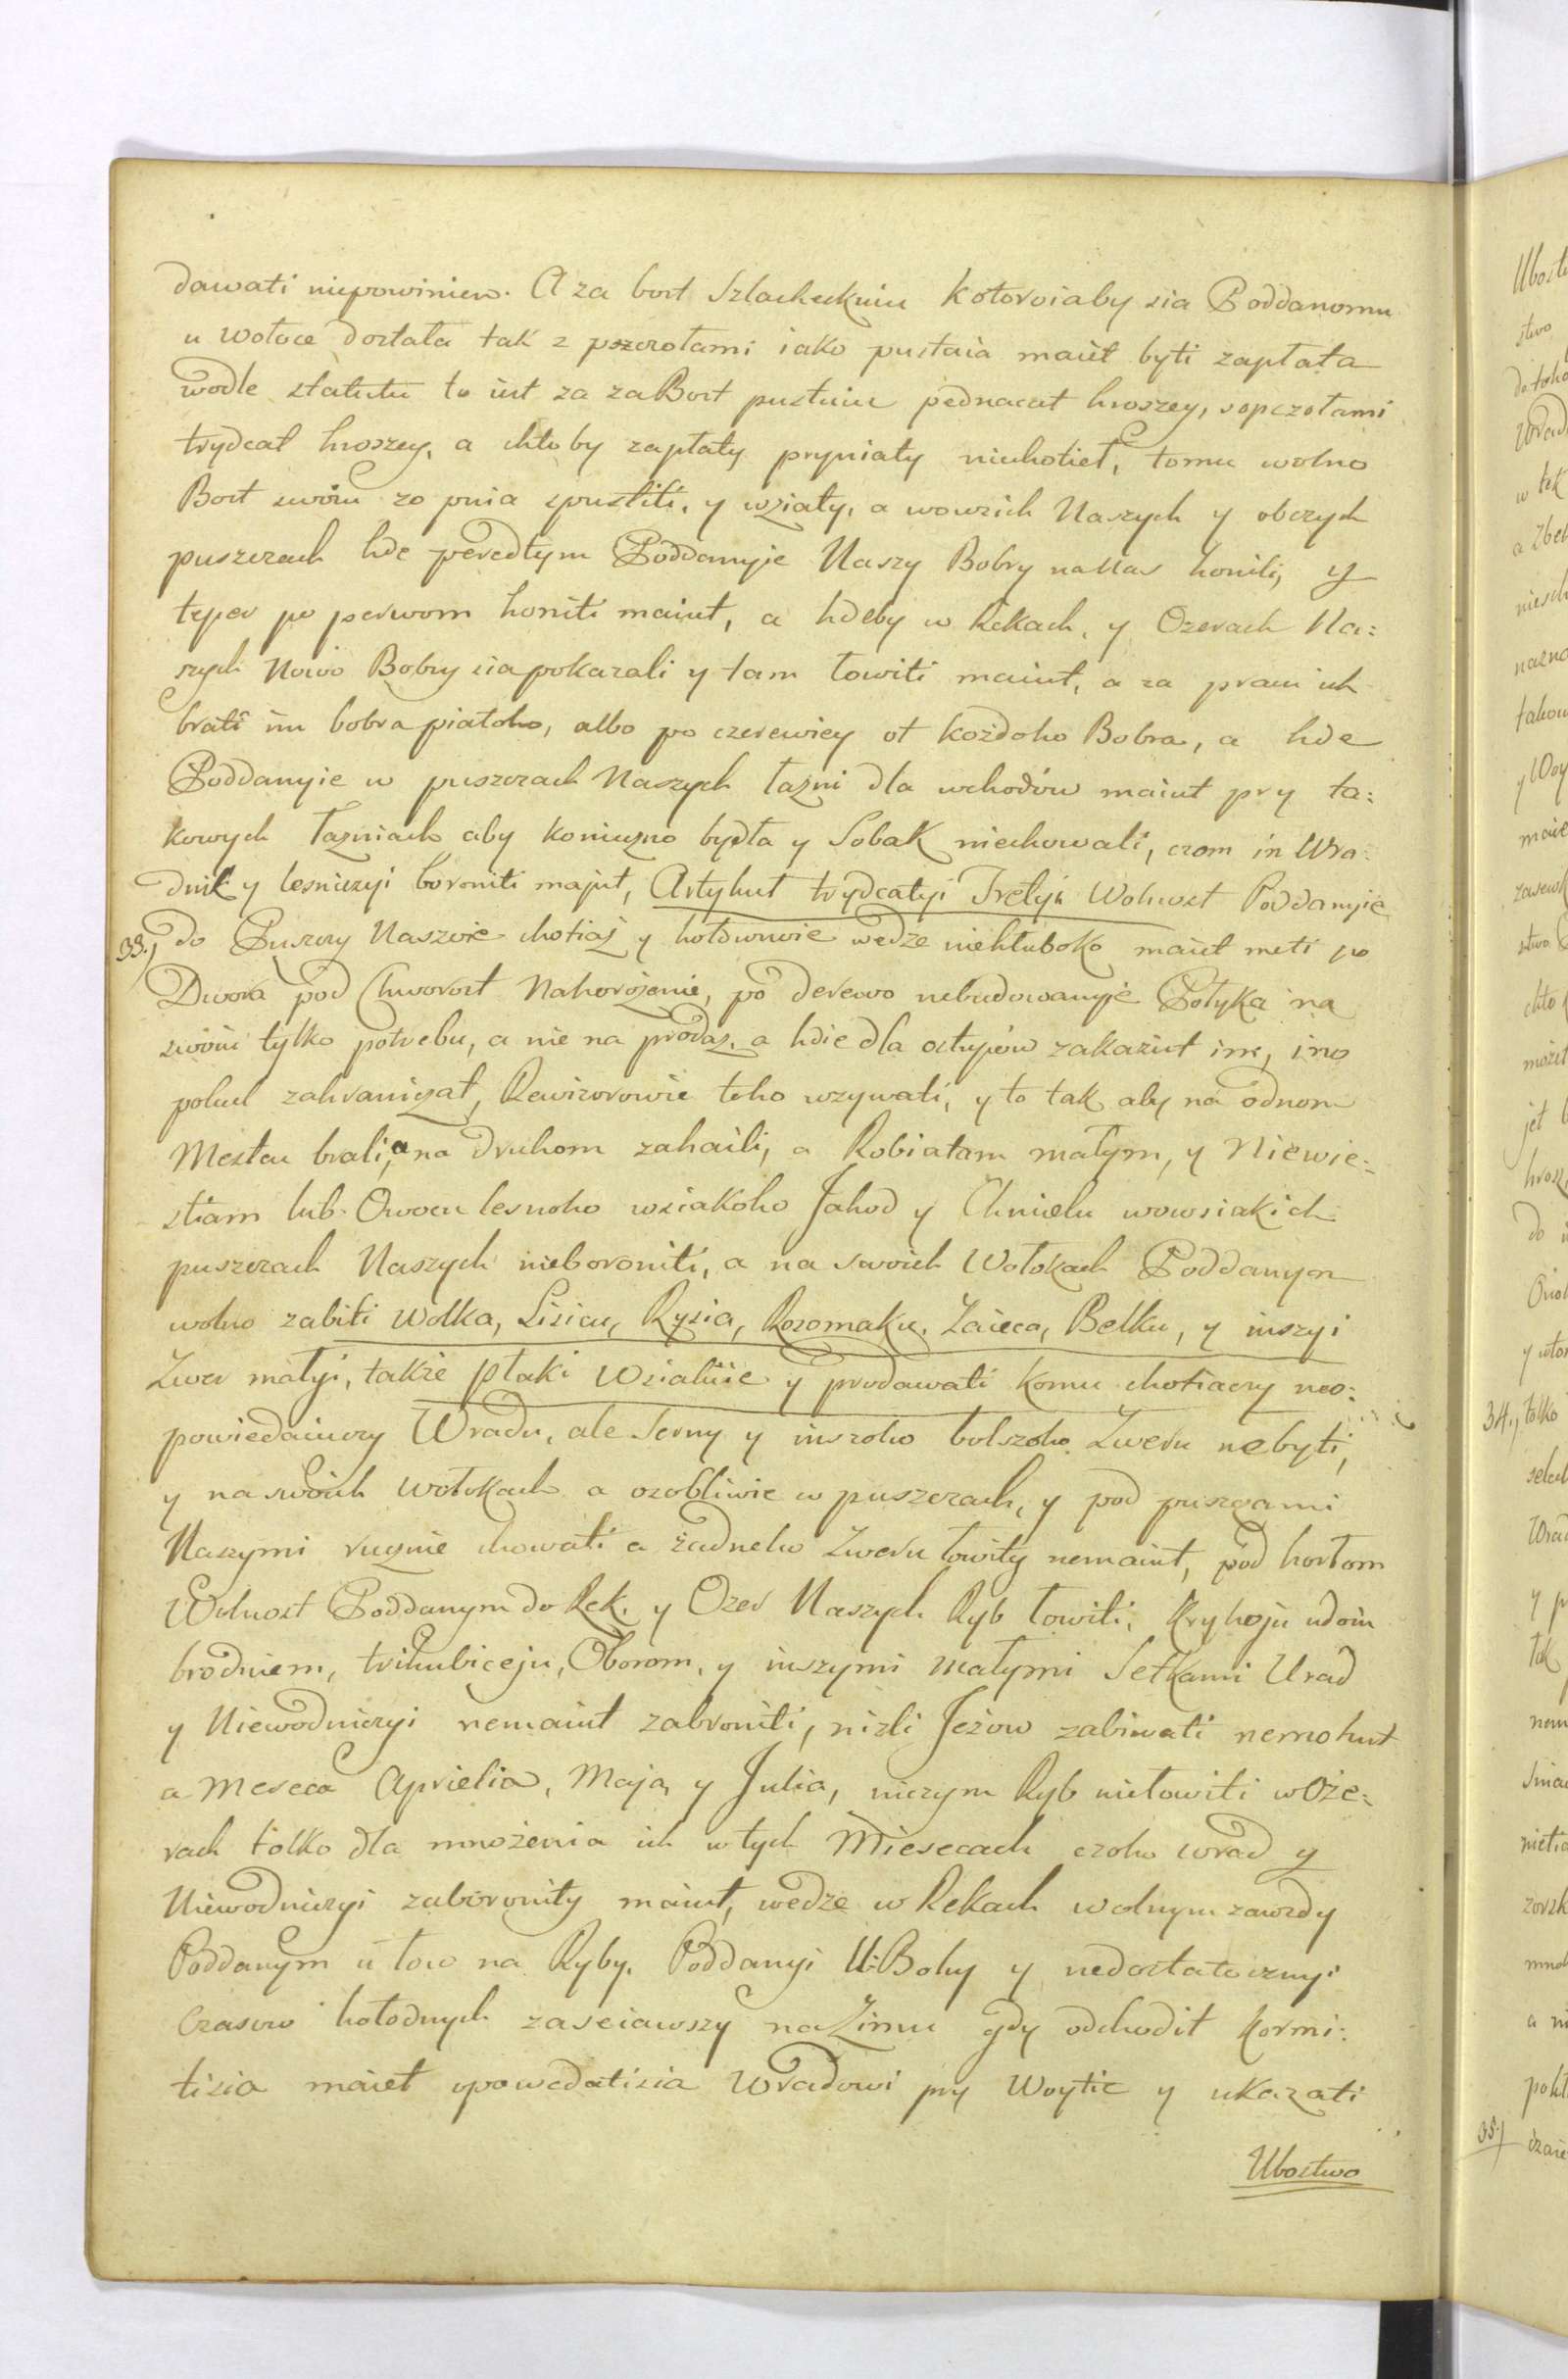 dawati niepowinien. A za bort Szlacheckuiu Kotoroiaby sia Poddanomu
u Wołoce dostała tak z pszczołami iako pustaia maiut byti zapłata
wodle statutu to iest za zaBort pustuiu pednacat hroszey, sopczołami
trydcat hroszey, a chto by zapłaty pryniaty niechotieł, tomu wolno
Bort swoiu zo pnia spustiti, y wziaty, a wowsich Naszych y obczych
puszczach hde peredtym Poddanyje Naszy Bobry na Nas honili, y
teper po perwom honiti maiut, a hdeby w Rekach, y Ozerach Na=
szych Nowo Bobry sia pokazali y tam łowiti maiut, a za pracu ich
brati im bobra piatoho, albo po czerewiey ot kożdoho Bobra, a hde
Poddanyie w puszczach Naszych łazni dla wchodów maiut pry ta=
kowych Łazniach aby koniuzno bydła y Sobak niechowali, czom in Wra=
dnik y lesniczyi boroniti majut, Artykuł trydcatyi Tretyi Wolnost Poddanyie
33.) do Puszczy Naszoie chotiaj y hołdwnoie wedze niehłuboko maiut meti po
Drwa pod Chworost Nahorożenie, po derewo nebudowanyje Połyka na
swoiu tylko potrebu, a nie na prodaz, a hdie dla ostupów zakaziut im, ino
pokul zahranizat, Rewizorowie toho wzywati, y to tak aby na odnom
Mestcu brali, a na druhom zahaili, a Robiatam małym, y Niewie=
stiam lub Owocu lesnoho wsiakoho Jahod y Chmielu wowsiakich
puszczach Naszych nieboroniti, a na swoich Wołokach Poddanym
wolno zabiti Wołka, Lisicu, Rysia, Rozomaku, Zaieca, Bełku, y inszyi
Zwer małyi, takie ptaki Wsialuie y prodawati komu chotiaczy neo=
powiedaiuczy Wradu, ale Serny y inszoho bolszoho Zweru nebyti,
y na swoich wołokach a osobliwie w puszczach, y pod puszczami
Naszymi ruznie chowati a żadneho Zweru łowity nemaiut, pod horłom
Wolnost Poddanym do Rek, y Ozer Naszych Ryb łowiti, Kryhoju udoiu
brodniem, trihubiceju, Oborom, y inszymi małymi Setkami Urad
y Niewodniczyi nemaiut zabroniti, nizli Jezow zabiwati nemohut
a Meseca Aprielia, Maja, y Julia, niczym Ryb niełowiti w Oze=
rach tolko dla mnożenia ich w tych Miesecach czoho wrad y
Niewodniczyi zaboronity maiut, wedze w Rekach wolnym zawzdy
Poddanym u łow na Ryby. Poddanyi U:Bohy y nedostatocznyi
Czasow hołodnych zasciawszy na Zimu gdy odchodit Kormi=
tisia maiet opowedatisia Wradowi pry Woytie y ukazati
Ubostwo
34.)
35.)